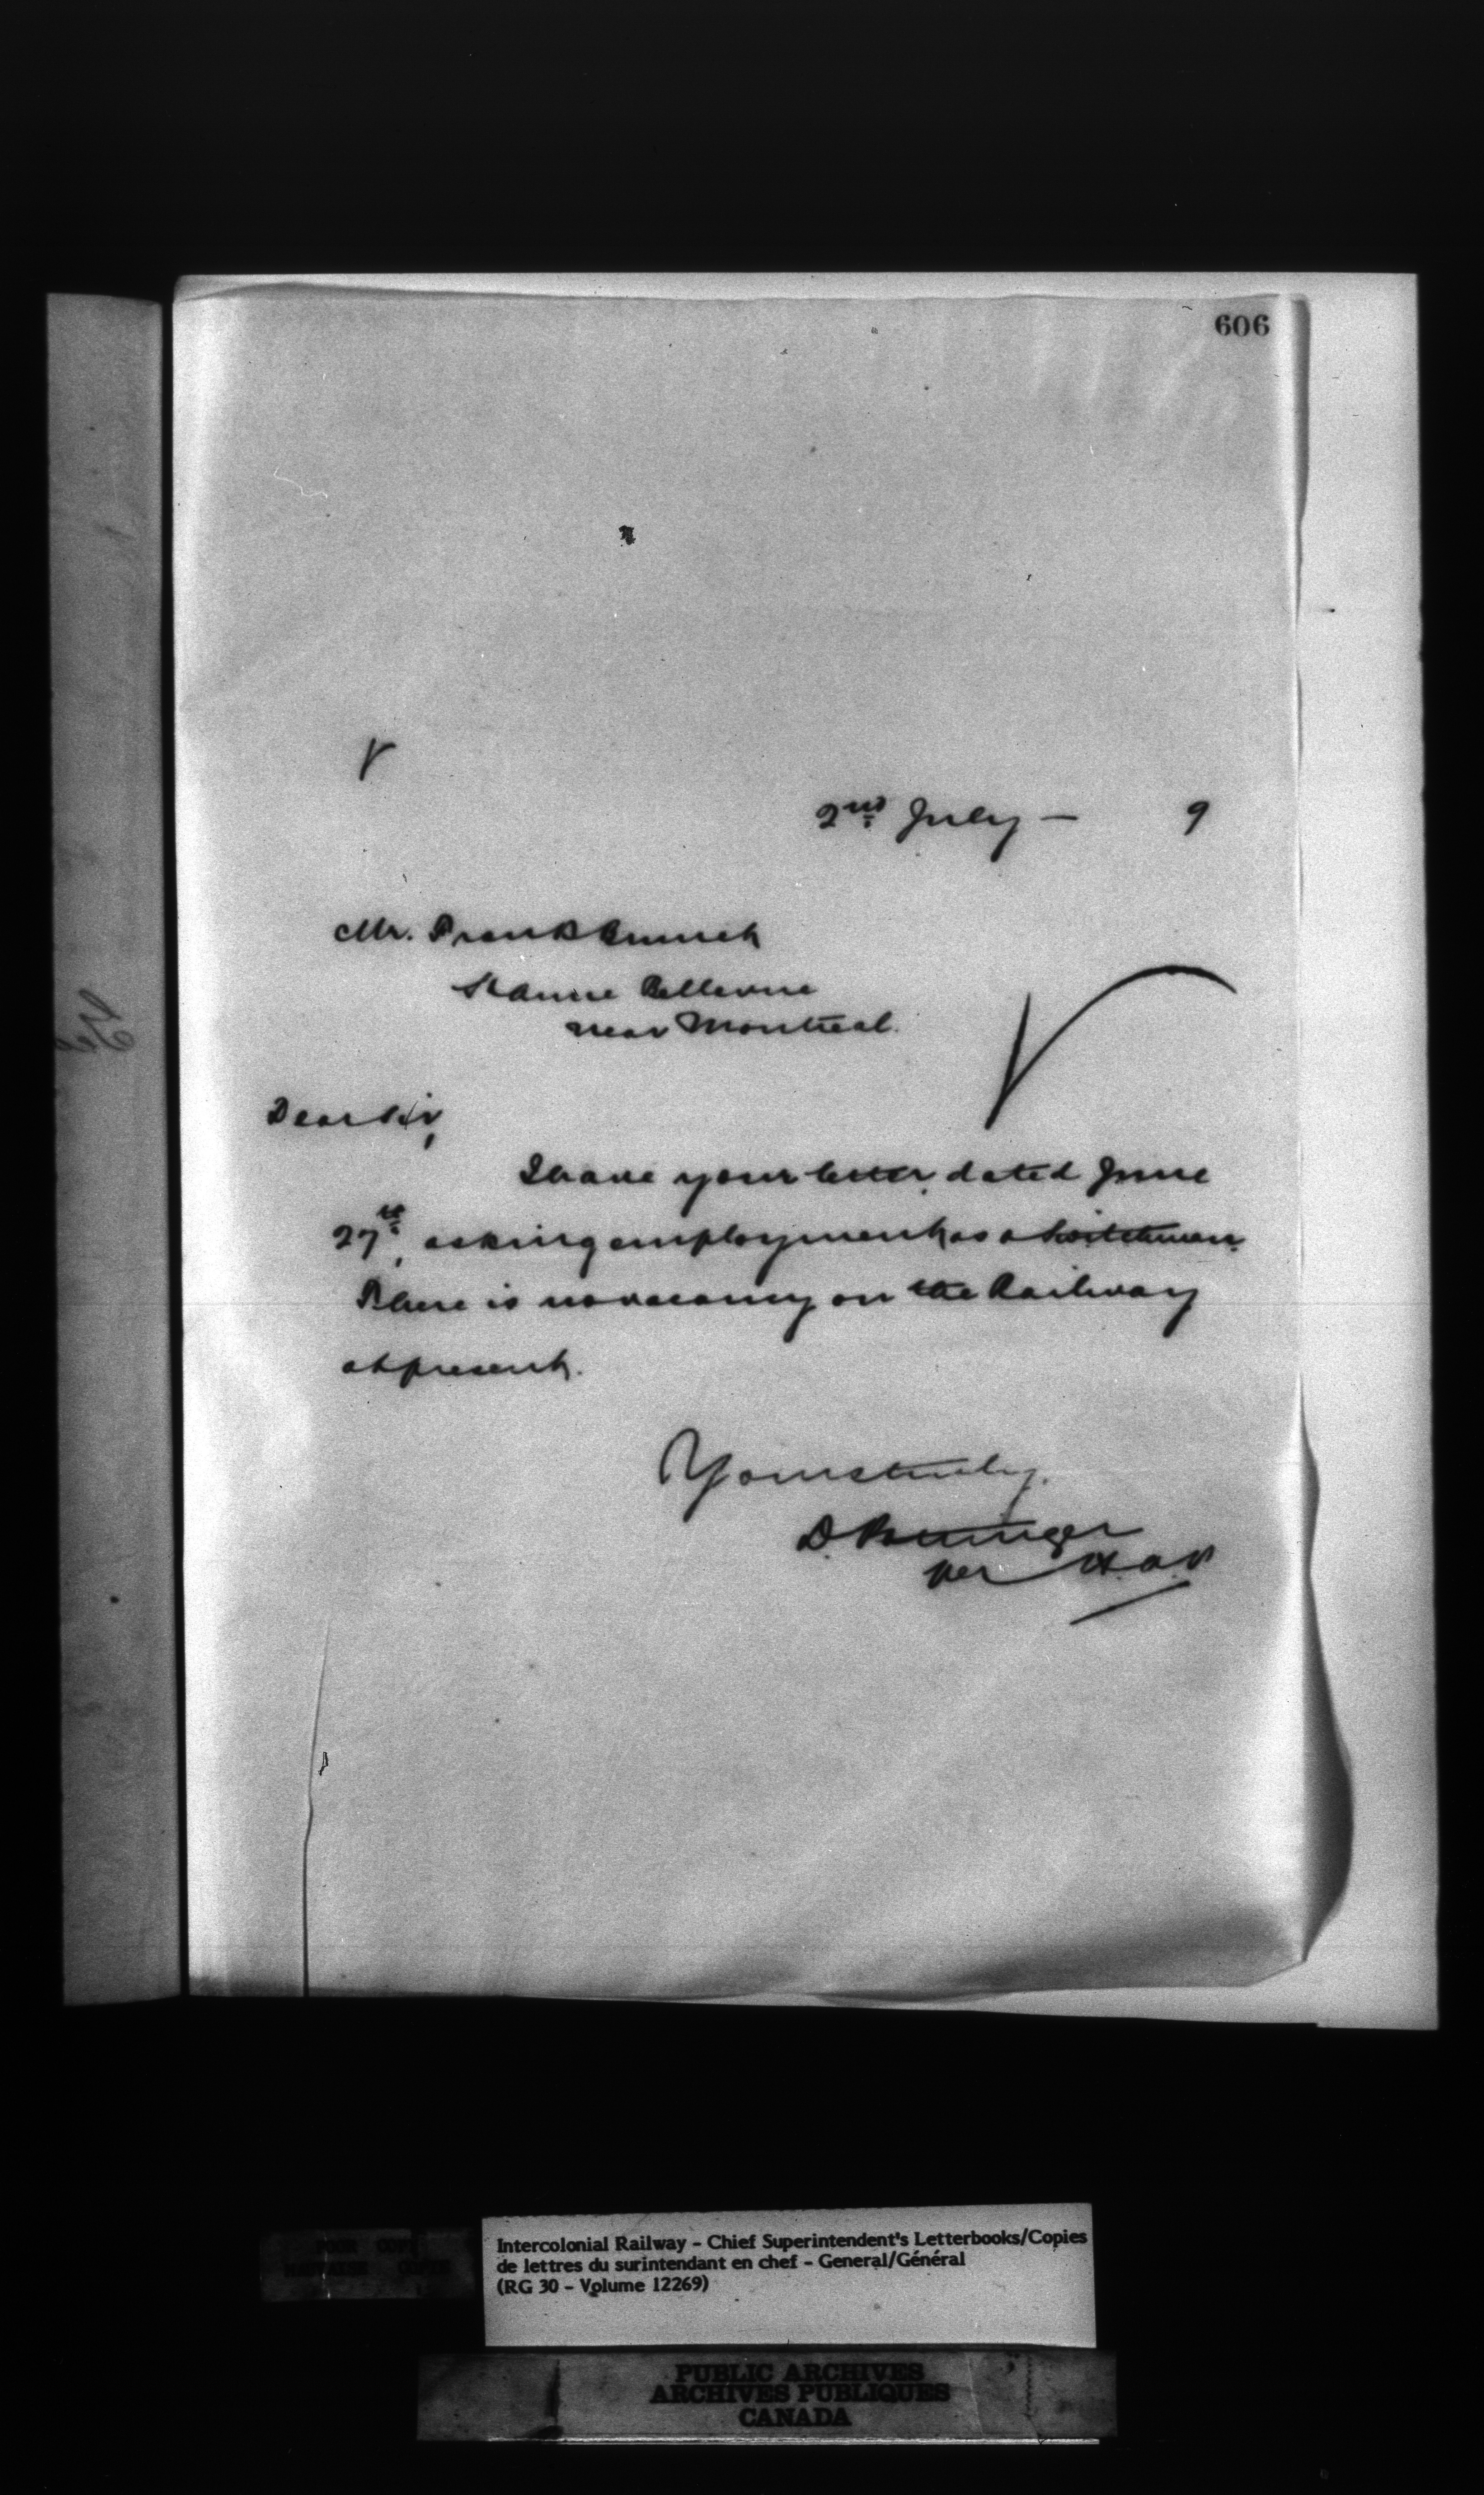 606
2nd July — 9
Mr. Frank
St Anne Bellevue
near Montreal.
Dear Sir,
I have your letter dated June
27th, asking employment as a Switchman.
There is no vacancy on the Railway
at present.
Yours truly,
D. Pottinger
per
Intercolonial Railway – Chief Superintendent's Letterbooks/Copies
de lettres du surintendant en chef – General/Général
(RG 30 – Volume 12269)
POOR COPY
MAUVAISE COPIE
PUBLIC ARCHIVES
ARCHIVES PUBLIQUES
CANADA